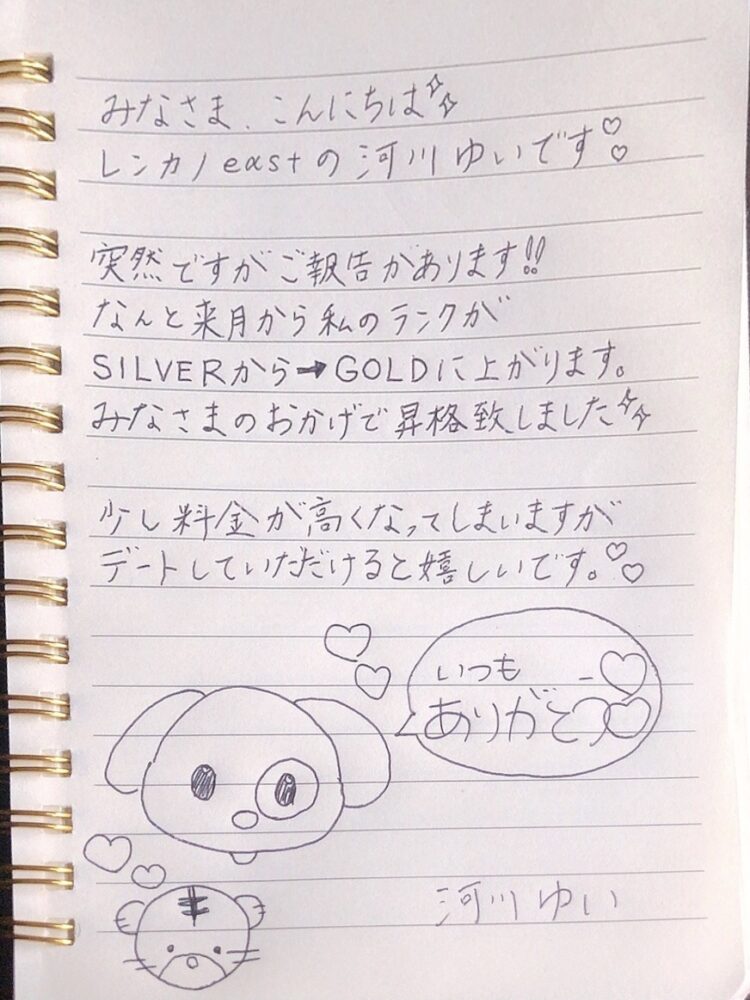 みなさま、こんにちは✨
レンカノeastの河川ゆいです♡♡
突然ですがご報告があります!!
なんと来月から私のランクが
SILVERから→GOLDに上がります。
みなさまのおかげで昇格致しました✨
少し料金が高くなってしまいますが
デートしていただけると嬉しいです。♡♡
いつも
ありがとう♡♡
河川ゆい